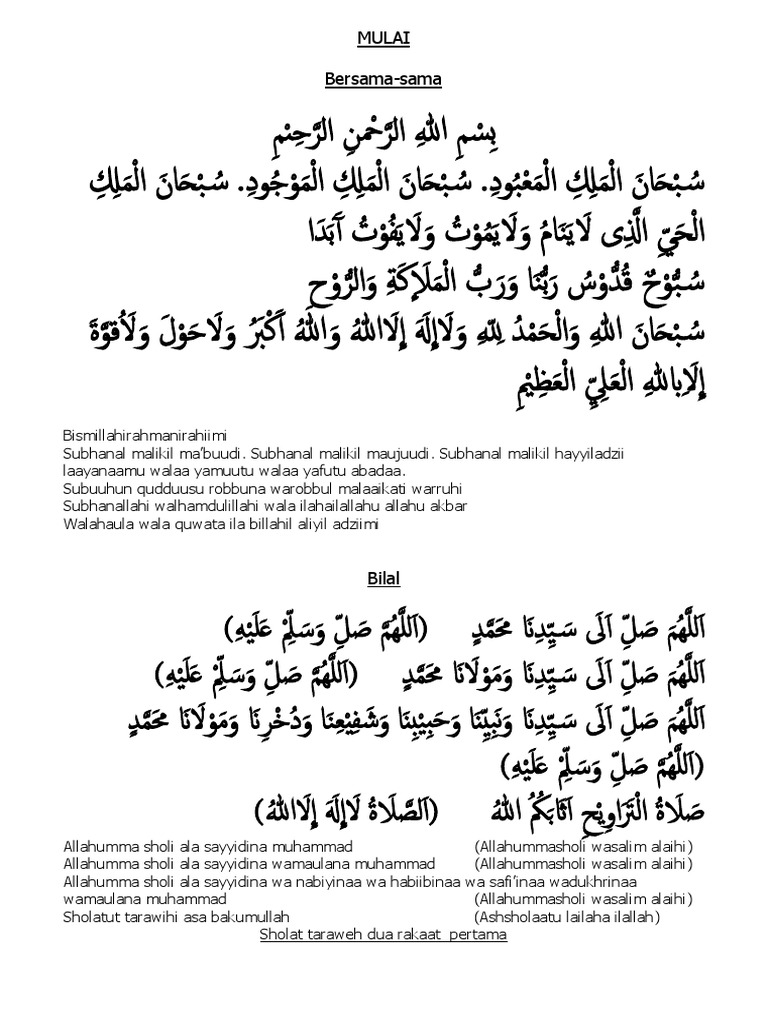 MULAI
Bersama-sama
بِسْمِ اللهِ الرَّحْمنِ الرَّحِيْمِ
سُبْحَانَ الْمَلِكِ الْمَعْبُودِ. سُبْحَانَ الْمَلِكِ الْمَوْجُودِ. سُبْحَانَ الْمَلِكِ
الْحَيِّ الَّذِى لَايَنَامُ وَلَايَمُوْتُ وَلَايَفُوْتُ آبَدَا
سُبُّوْحٌ قُدُّوْسُ رَبُّنَا وَرَبُّ الْمَلَإِكَةِ وَالرُّوْحِ
سُبْحَانَ اللهِ وَالْحَمْدُ لِلّهِ وَلَاإِلَهَ إِلَااللهُ وَاللهُ أَكْبَرُ وَلَاحَوْلَ وَلَاُقوَّةَ
إِلَابِاللهِ الْعَلِيِّ الْعَظِيْمِ
Bismillahirahmanirahiimi
Subhanal malikil ma'buudi. Subhanal malikil maujuudi. Subhanal malikil hayyiladzii
laayanaamu walaa yamuutu walaa yafutu abadaa.
Subuuhun qudduusu robbuna warobbul malaaikati warruhi
Subhanallahi walhamdulillahi wala ilahailallahu allahu akbar
Walahaula wala quwata ila billahil aliyil adziimi
Bilal
اَللَّهُمَّ صَلِّ اَلَى سَيِّدِنَا مُحَمَّدٍ (اَللَّهُمَّ صَلِّ وَسَلِّمْ عَلَيْهِ)
اَللَّهُمَّ صَلِّ اَلَى سَيِّدِنَا وَمَوْلَانَا مُحَمَّدٍ (اَللَّهُمَّ صَلِّ وَسَلِّمْ عَلَيْهِ)
اَللَّهُمَّ صَلِّ اَلَى سَيِّدِنَا وَنَبِيِّنَا وَحَبِيْبِنَا وَشَفِيْعِنَا وَدُخْرِنَا وَمَوْلَانَا مُحَمَّدٍ
(اَللَّهُمَّ صَلِّ وَسَلِّمْ عَلَيْهِ)
صَلَاةُ الْتَرَاوِيْحِ اَثَابَكُمُ اللهُ (اَلصَّلَاةُ لَاإِلَهَ إِلَااللهُ)
Allahumma sholi ala sayyidina muhammad (Allahummasholi wasalim alaihi)
Allahumma sholi ala sayyidina wamaulana muhammad (Allahummasholi wasalim alaihi)
Allahumma sholi ala sayyidina wa nabiyinaa wa habiibinaa wa safi'inaa wadukhrinaa
wamaulana muhammad (Allahummasholi wasalim alaihi)
Sholatut tarawihi asa bakumullah (Ashsholaatu lailaha ilallah)
Sholat taraweh dua rakaat pertama